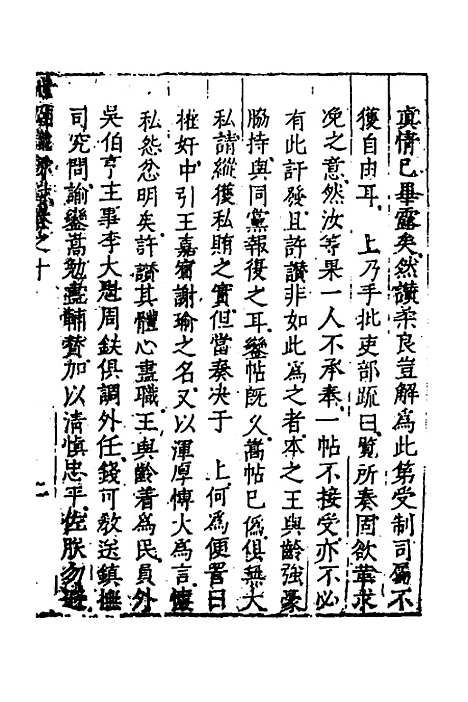 真情已畢露矣然讃柔良豈解爲此第受制司屬不
獲自由耳　上乃手批吏部疏曰覽所奏固欲革求
免之意然汝等果一人不承奉一帖不接受亦不必
有此訐發且許讃非如此爲之者本之王與齡強豪
脇持與同黨報復之耳鑾帖旣久嵩帖已僞俱無大
私請縱獲私賄之實但當奏决于　上何爲便置曰
權奸中引王嘉賓謝瑜之名又以渾厚博大爲言懷
私怨忿明矣許讃其體心盡職王與齡著爲民員外
吳伯亨主事李大魁周鈇俱調外任錢可敎送鎮撫
司究問諭鑾嵩勉盡輔賛加以清慎忠平佐朕勿避
之十